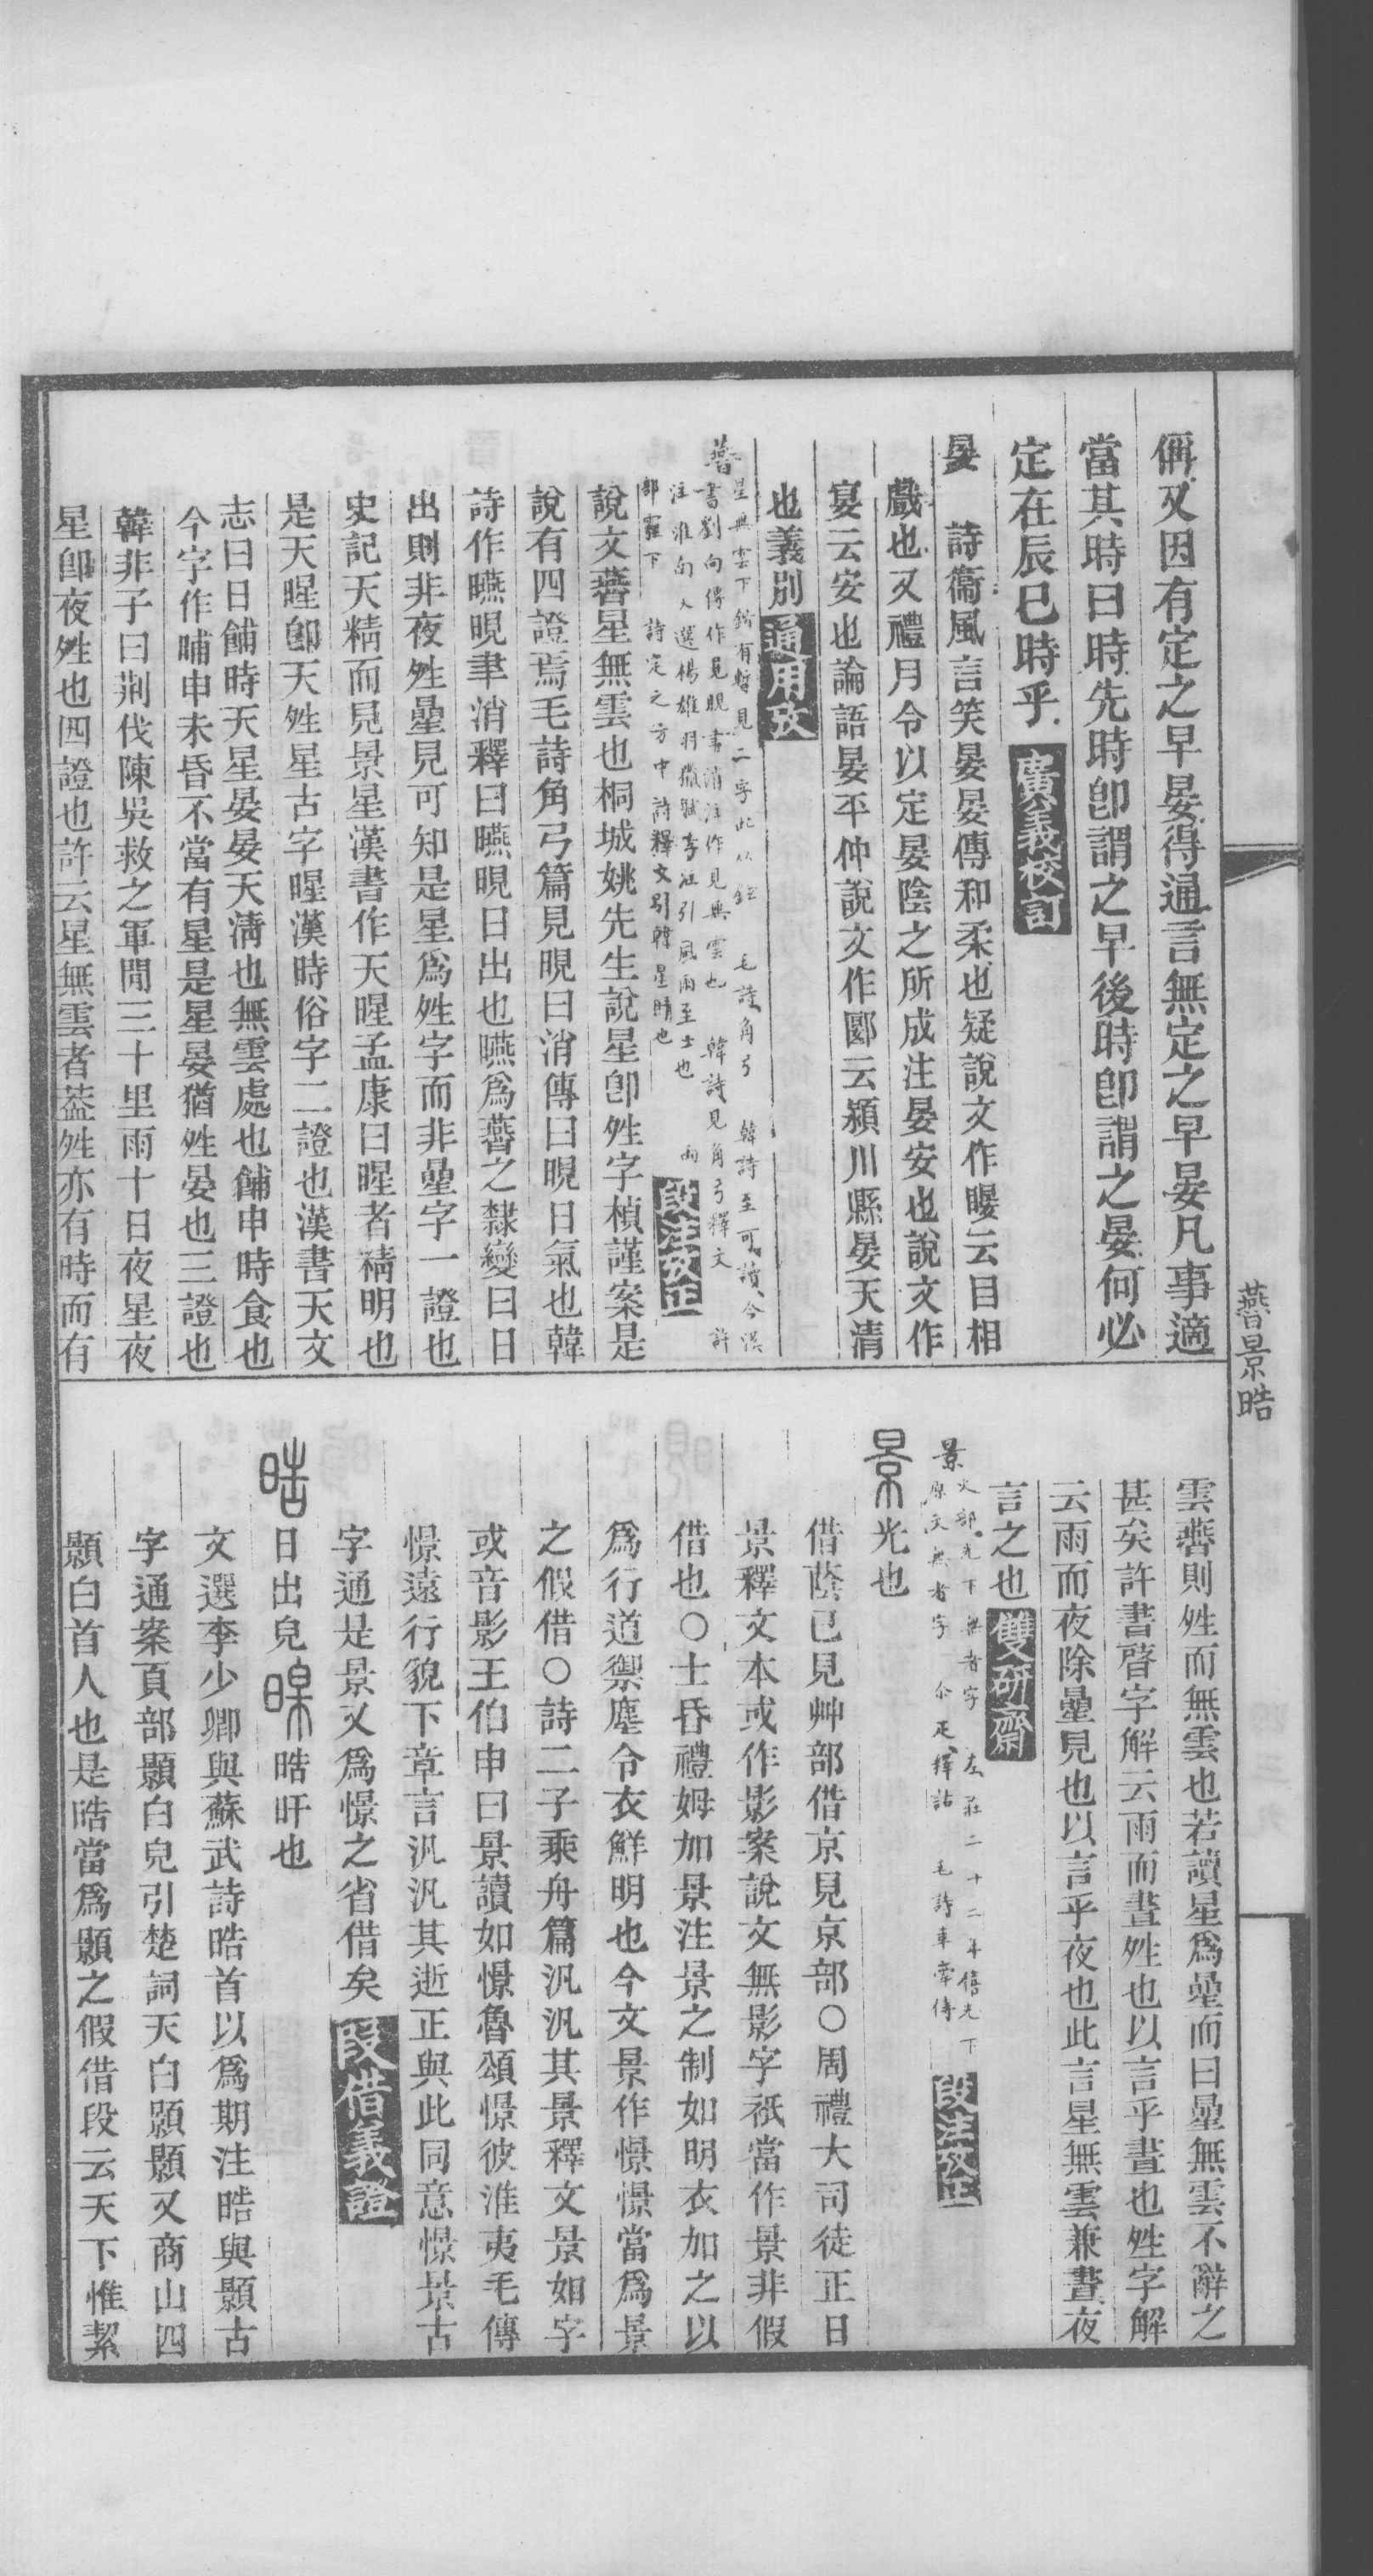 偁又因有定之早晏得通言無定之早晏凡事適
當其時曰時先時卽謂之早後時卽謂之晏何必
定在辰巳時乎 廣義校訂
晏 詩衞風言笑晏晏傳和柔也疑說文作㬫云目相
戲也又禮月令以定晏陰之所成注晏安也說文作
宴云安也論語晏平仲說文作郾云潁川縣晏天清
也義別 通用攷
䳺星無雲下 毛詩角弓 韓詩至可讀今漢
書劉向傳作見晛 韓詩見角弓釋文 許
注淮南 文選楊雄羽獵賦李注引 也 雨
部霍下 詩定之方中詩釋文引韓星晴也 段注攷正
說文㬫星無雲也桐城姚先生說星卽夝字楨謹案是
說有四證焉毛詩角弓篇見晛曰消傳曰晛日氣也韓
詩作曣晛聿消釋曰曣晛日出也曣爲㬫之隸變曰日
出則非夜夝曐見可知是星爲夝字而非曐字一證也
史記天精而見景星漢書作天暒孟康曰暒者精明也
是天暒卽天夝星古字暒漢時俗字二證也漢書天文
志曰日餔時天星晏晏天淸也無雲處也餔申時食也
今字作晡申未昏不當有星是星晏猶夝晏也三證也
韓非子曰荆伐陳吳救之軍閒三十里雨十日夜星夜
星卽夜夝也四證也許云星無雲者葢夝亦有時而有
㬫景晧
雲㬫則夝而無雲也若讀星爲曐而曰曐無雲不辭之
甚矣許書啓字解云雨而晝夝也以言乎晝也夝字解
云雨而夜除曐見也以言乎夜也此言星無雲兼晝夜
言之也 雙硏齋
景火部光下無者字 左莊二十二年僖光下
原文無者字 尒疋釋詁 毛詩車舝傳 段注攷正
景光也
借蔭已見艸部借京見京部○周禮大司徒正日
景釋文本或作影案說文無影字祇當作景非假
借也○士昏禮姆加景注景之制如明衣加之以
爲行道禦塵令衣鮮明也今文景作憬憬當爲景
之假借○詩二子乘舟篇汎汎其景釋文景如字
或音影王伯申曰景讀如憬魯頌憬彼淮夷毛傳
憬遠行貌下章言汎汎其逝正與此同意憬景古
字通是景又爲憬之省借矣 段借義證
晧日出皃 暤晧旰也
文選李少卿與蘇武詩晧首以爲期注晧與顥古
字通案頁部顥白皃引楚詞天白顥顥又商山四
顥白首人也是晧當爲顥之假借段云天下惟絜